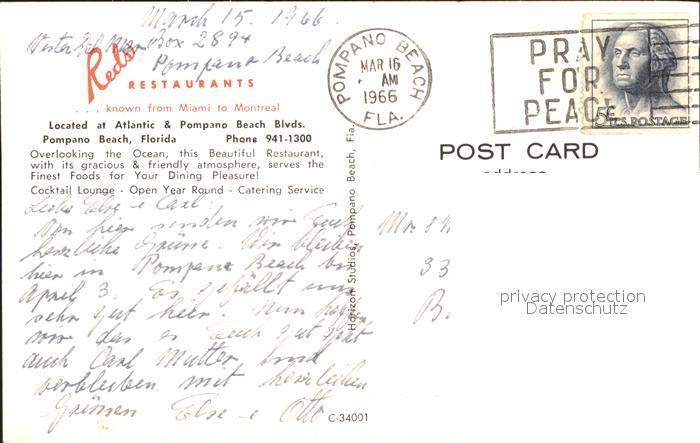 March 15. 1966.
Box 2894
Pompano Beach
Red's
RESTAURANTS
. . . known from Miami to Montreal
Located at Atlantic & Pompano Beach Blvds.
Pompano Beach, Florida Phone 941-1300
Overlooking the Ocean, this Beautiful Restaurant,
with its gracious & friendly atmosphere, serves the
Finest Foods for Your Dining Pleasure!
Cocktail Lounge - Open Year Round - Catering Service
Liebe Else e Carl.
Von hier senden wir Euch
herzliche Grüsse. Wir bleiben
hier in Pompano Beach bis
April 3. Es gefällt uns
sehr gut hier. Nun hoffen
wir das es Euch gut geht
auch Carl Mutter und
verbleiben mit herzlichen
Grüssen Else e Otto
C-34001
Horizon Studios, Pompano Beach, Fla.
POMPANO BEACH
MAR 16
AM
1966
FLA.
PRAY
FOR
PEACE
5¢ U.S. POSTAGE
POST CARD
address
Mr. &
33
B.
privacy protection
Datenschutz